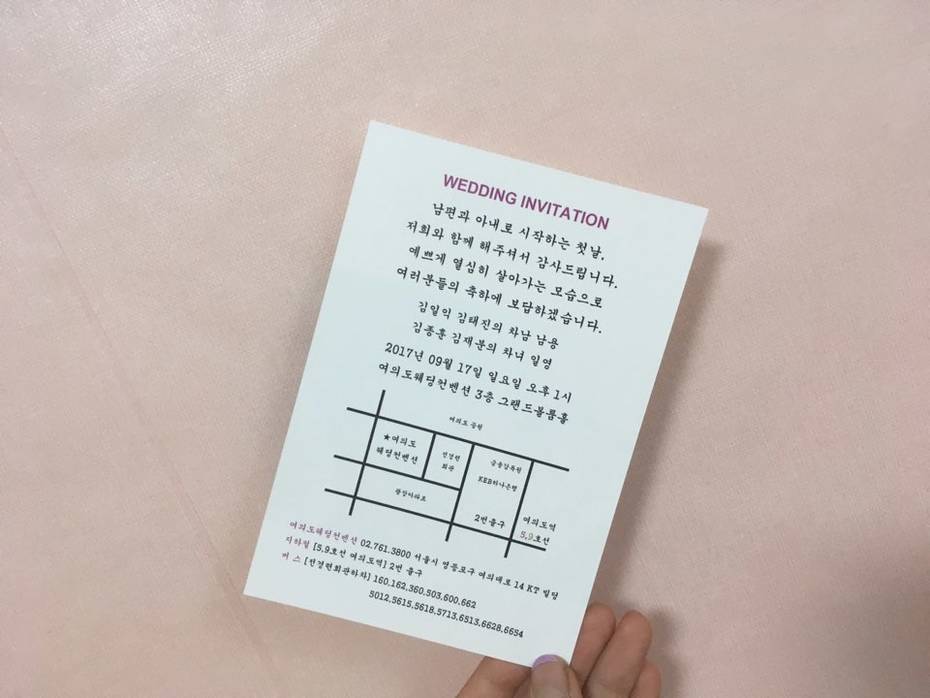 WEDDING INVITATION
남편과 아내로 시작하는 첫날,
저희와 함께 해주셔서 감사드립니다.
예쁘게 열심히 살아가는 모습으로
여러분들의 축하에 보답하겠습니다.
김일익 김태진의 차남 남용
김종훈 김재분의 차녀 일영
2017년 09월 17일 일요일 오후 1시
여의도웨딩컨벤션 3층 그랜드볼룸홀
여의도 공원
★여의도
웨딩컨벤션
전경련
회관
금융감독원
KEB하나은행
광장아파트
2번출구
여의도역
5,9호선
여의도웨딩컨벤션 02.761.3800 서울시 영등포구 여의대로 14 KT 빌딩
지하철 [5,9호선 여의도역] 2번 출구
버 스 [전경련회관하차] 160.162.360.503.600.662
5012.5615.5618.5713.6513.6628.6654